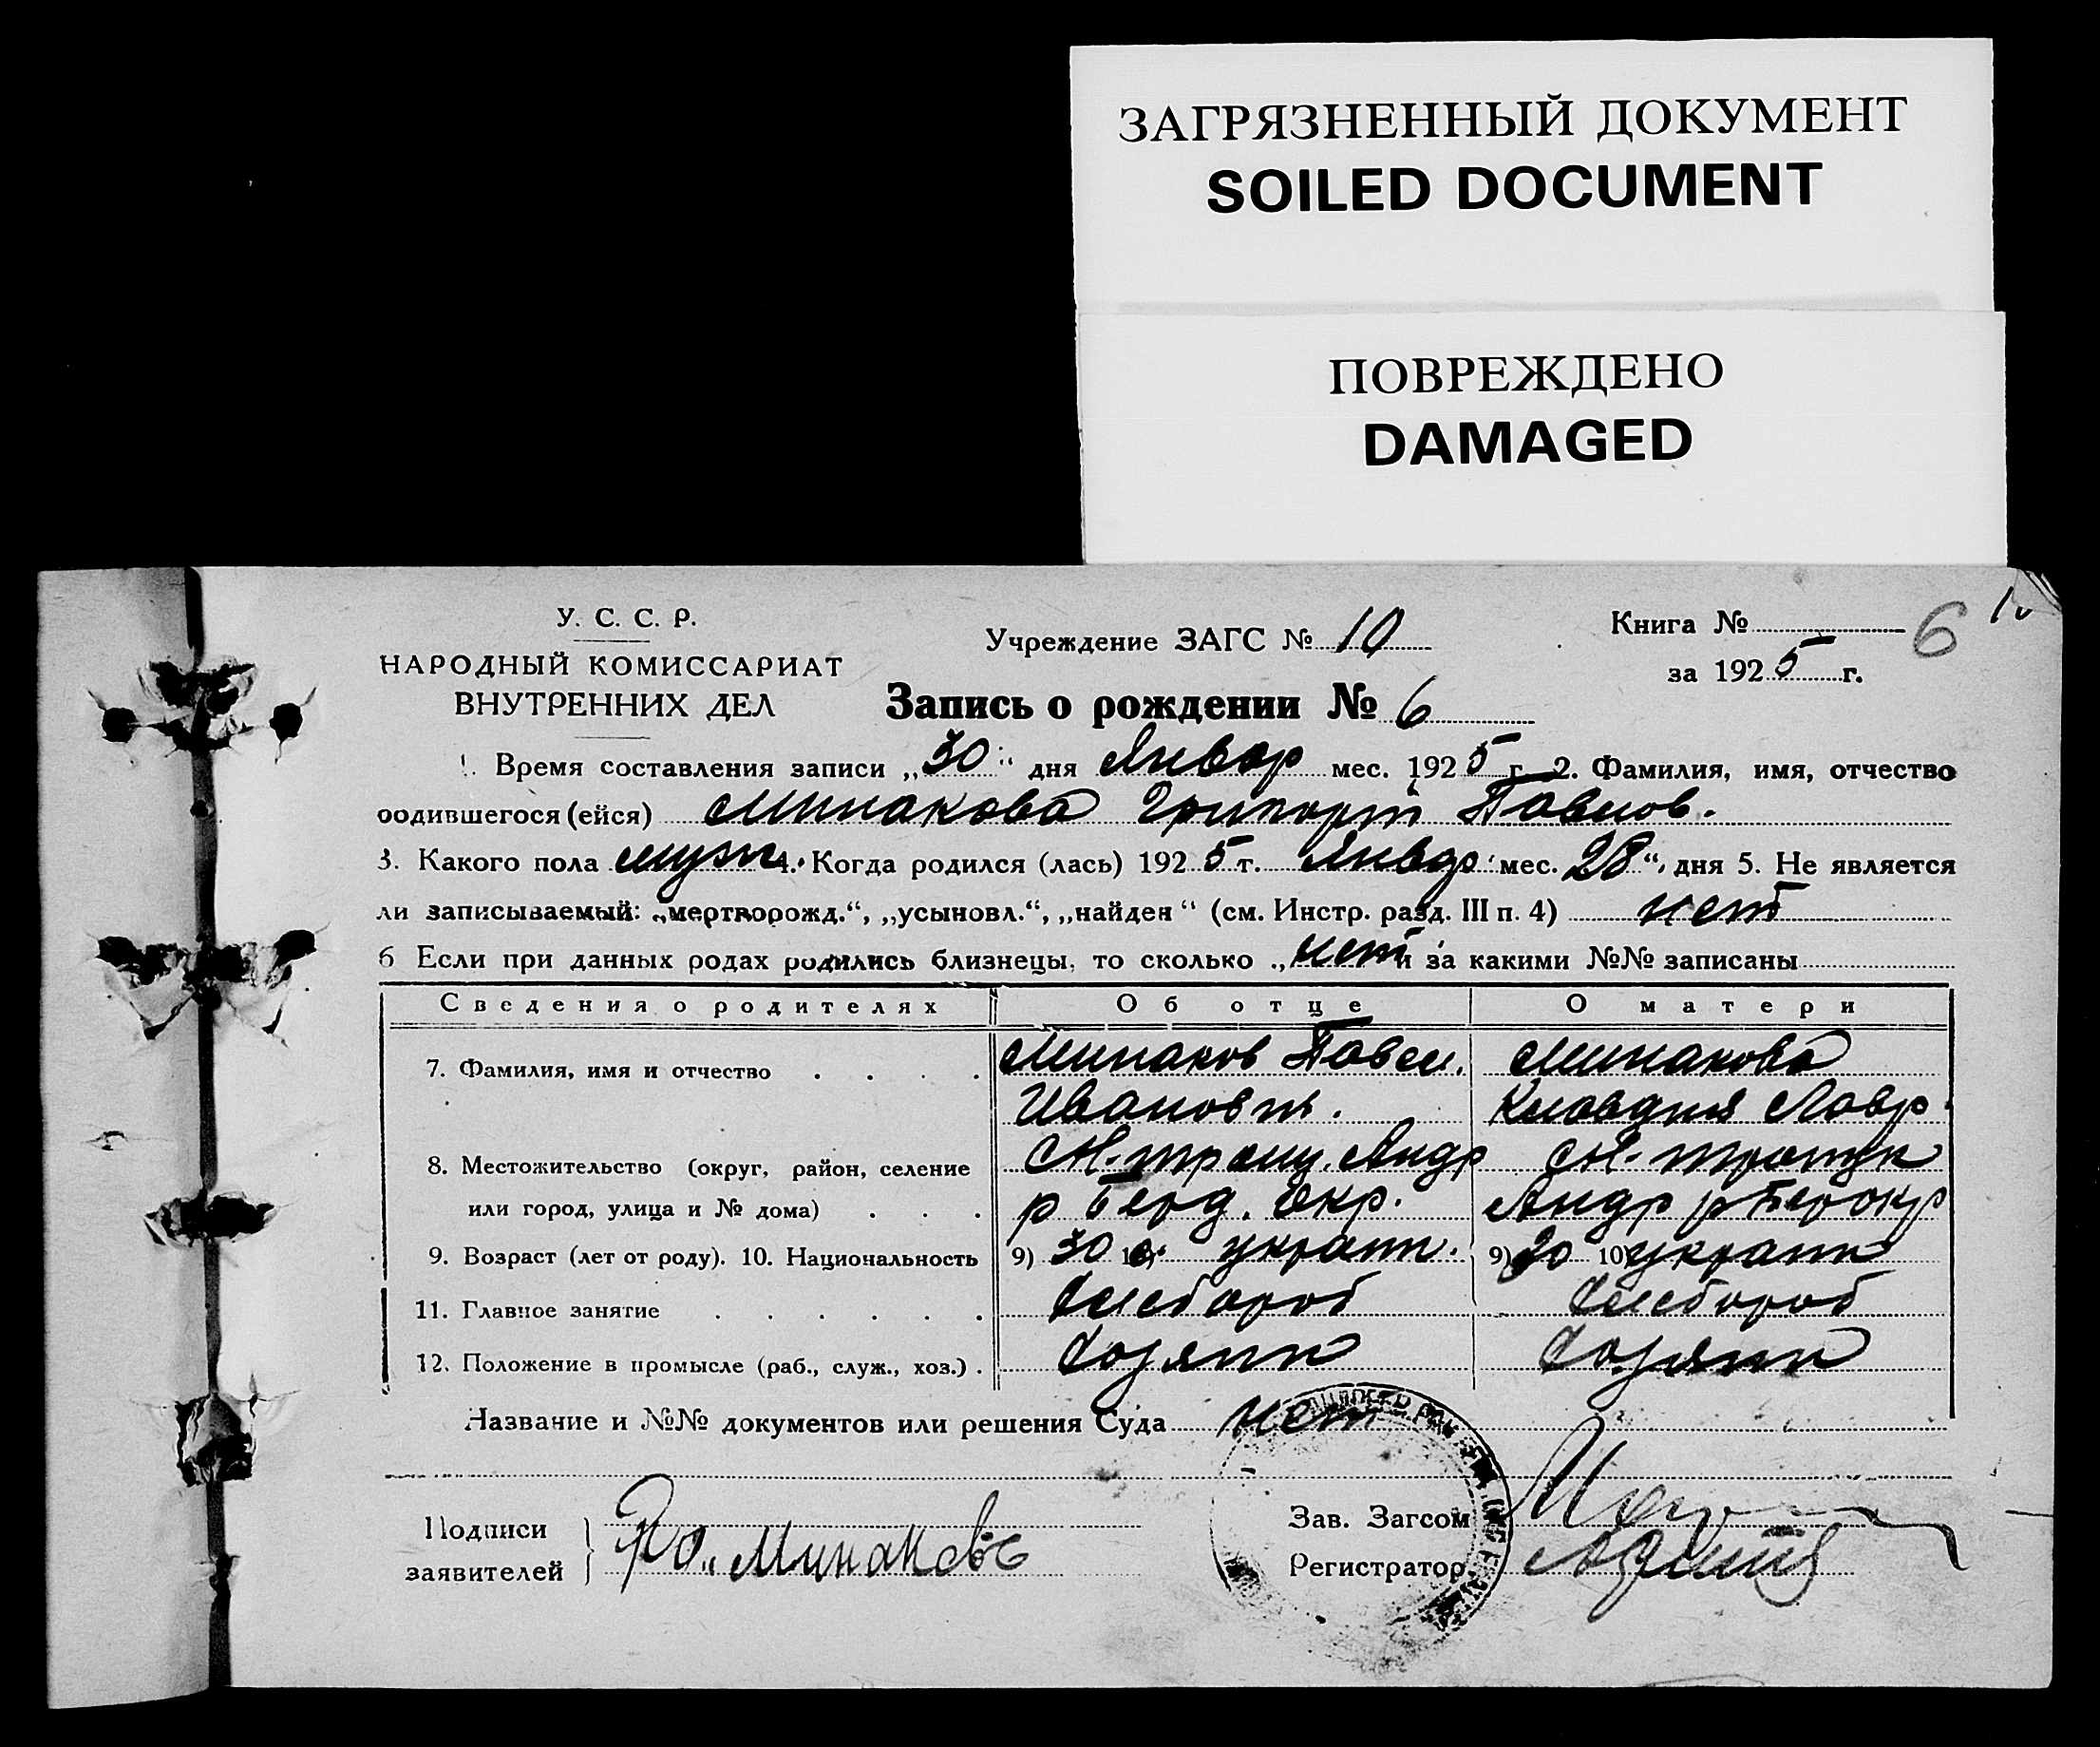 ЗАГРЯЗНЕННЫЙ ДОКУМЕНТ
SOILED DOCUMENT
ПОВРЕЖДЕНО
DAMAGED
У. С. С. Р.
НАРОДНЫЙ КОМИССАРИАТ
ВНУТРЕННИХ ДЕЛ
Учреждение ЗАГС № 10
Книга № 6
за 1925 г.
Запись о рождении № 6
1. Время составления записи „30“ дня Январ мес. 1925 г. 2. Фамилия, имя, отчество
родившегося (ейся) Минакова Григорий Павлов.
3. Какого пола муж. 4. Когда родился (лась) 1925 г. Январ мес. 28 “, дня 5. Не является
ли записываемый: „мертворожд.“, „усыновл.“, „найден“ (см. Инстр. разд. III п. 4) нет
6 Если при данных родах родились близнецы, то сколько „нет и за какими №№ записаны
Сведения о родителях Об отце О матери
7. Фамилия, имя и отчество Минаков Павел. Минакова
Иванович. Клавдия Лавр.
8. Местожительство (округ, район, селение Андр
или город, улица и № дома) р Берд. Окр. Андр р Бер окр
9. Возраст (лет от роду). 10. Национальность 9) 30 10) украин. 9) 30 10) украин
11. Главное занятие Хлебороб Хлебороб
12. Положение в промысле (раб., служ., хоз.) Хозяин Хозяин
Название и №№ документов или решения Суда нет
Подписи
заявителей Минаковъ
Зав. Загсом
Регистратор